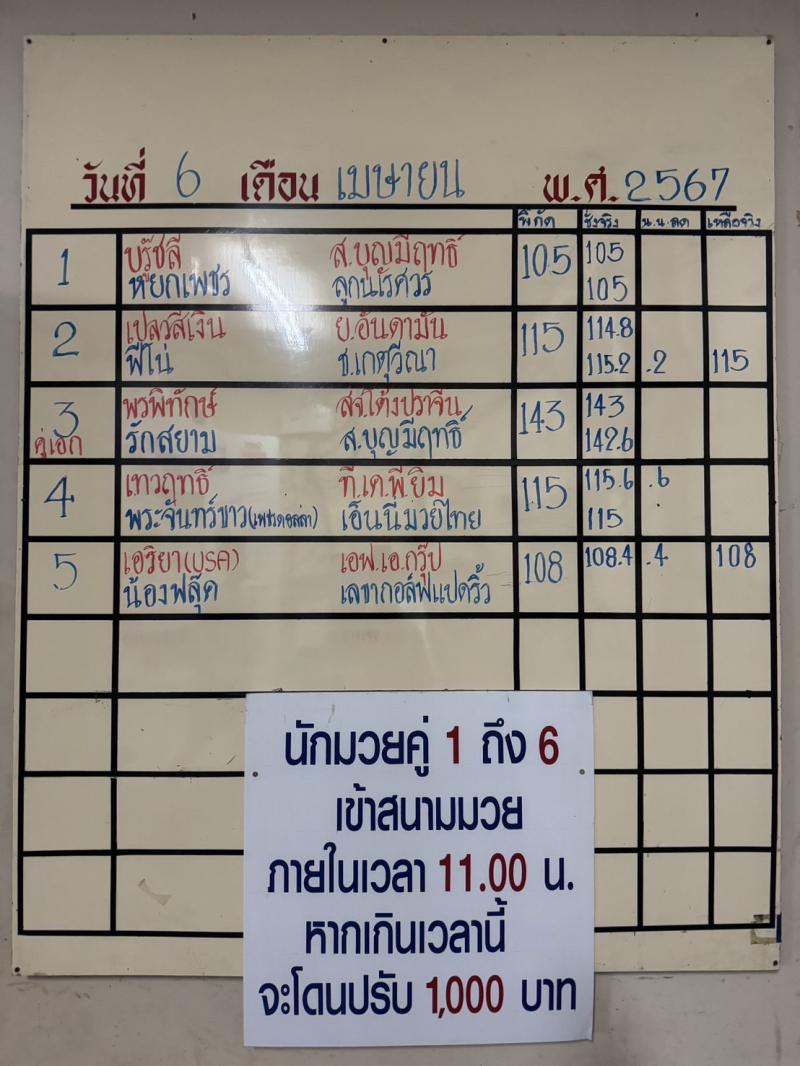 วันที่ 6 เดือน เมษายน พ.ศ. 2567
พิกัด ชั่งจริง น.น.ลด เหลือจริง
1 บรู๊ซลี ส.บุญมีฤทธิ์ 105 105
หยกเพชร ลูกนเรศวร 105
2 เปลวสีเงิน ย.อันดามัน 115 114.8
ฟีโน่ ช.เกตุวีณา 115.2 .2 115
3 พรพิทักษ์ สจ.โต้งปราจีน 143 143
คู่เอก รักสยาม ส.บุญมีฤทธิ์ 142.6
4 เทวฤทธิ์ ที.เค.พี.ยิม 115 115.6 .6
พระจันทร์ขาว เอ็นนี่มวยไทย 115
5 เอริยา(USA) เอฟ.เอ.กรุ๊ป 108 108.4 .4 108
น้องฟลุ๊ค เลขากอล์ฟแปดริ้ว
นักมวยคู่ 1 ถึง 6
เข้าสนามมวย
ภายในเวลา 11.00 น.
หากเกินเวลานี้
จะโดนปรับ 1,000 บาท